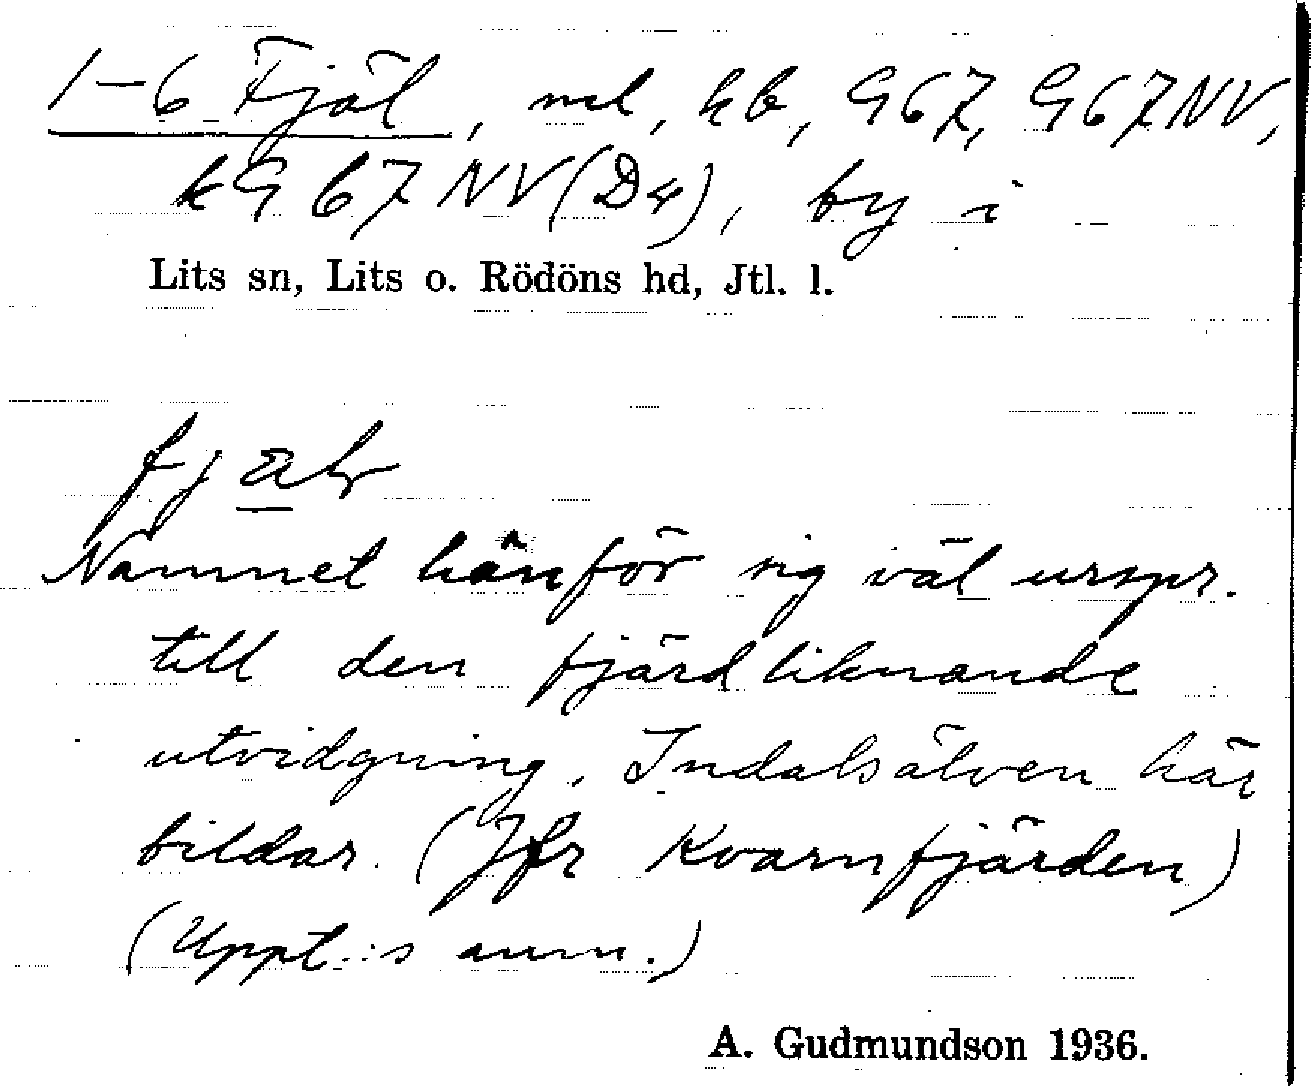 1–6 Fjäl, ml, kb, G67, G67NV,
kG67NV(D4), by i
Lits sn, Lits o. Rödöns hd, Jtl. l.
Namnet hänför sig väl urspr.
till den fjärdliknande
utvidgning, Indalsälven här
bildar. (Jfr Kvarnfjärden)
(Uppt.:s anm.)
A. Gudmundson 1936.